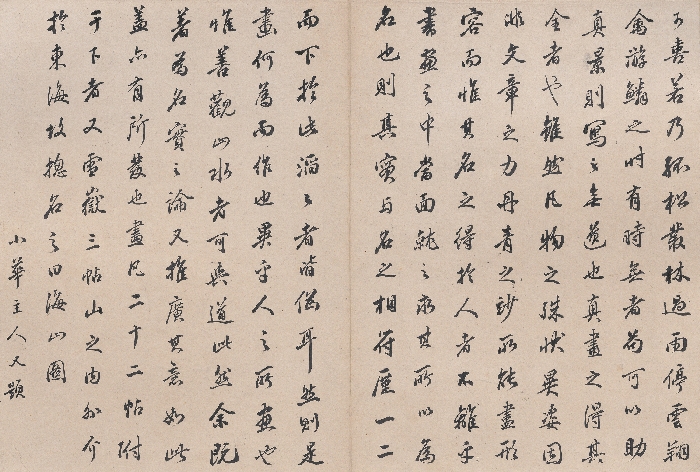 可喜若乃孤松叢林過雨停雲翔
禽游鱗之時有時無者苟可以助
真景則寫之無遺也真畫之得其
全者也雖然凡物之殊狀異姿固
非文章之力丹青之妙所能盡形
容而惟其名之得於人者不離乎
書畫之中當面觀之求其所以為
名也則其實与名之相符厪一二
而下於此滔滔者皆倀耳然則是
畫何為而作也異乎人之所畫也
惟善觀山水者可與道此然余既
著為名實之論又推廣其意如此
蓋亦有所發也畫凡二十二帖附
于下者又雪嶽三帖山之內外介
於東海故摠名之曰海山圖
小華主人又題